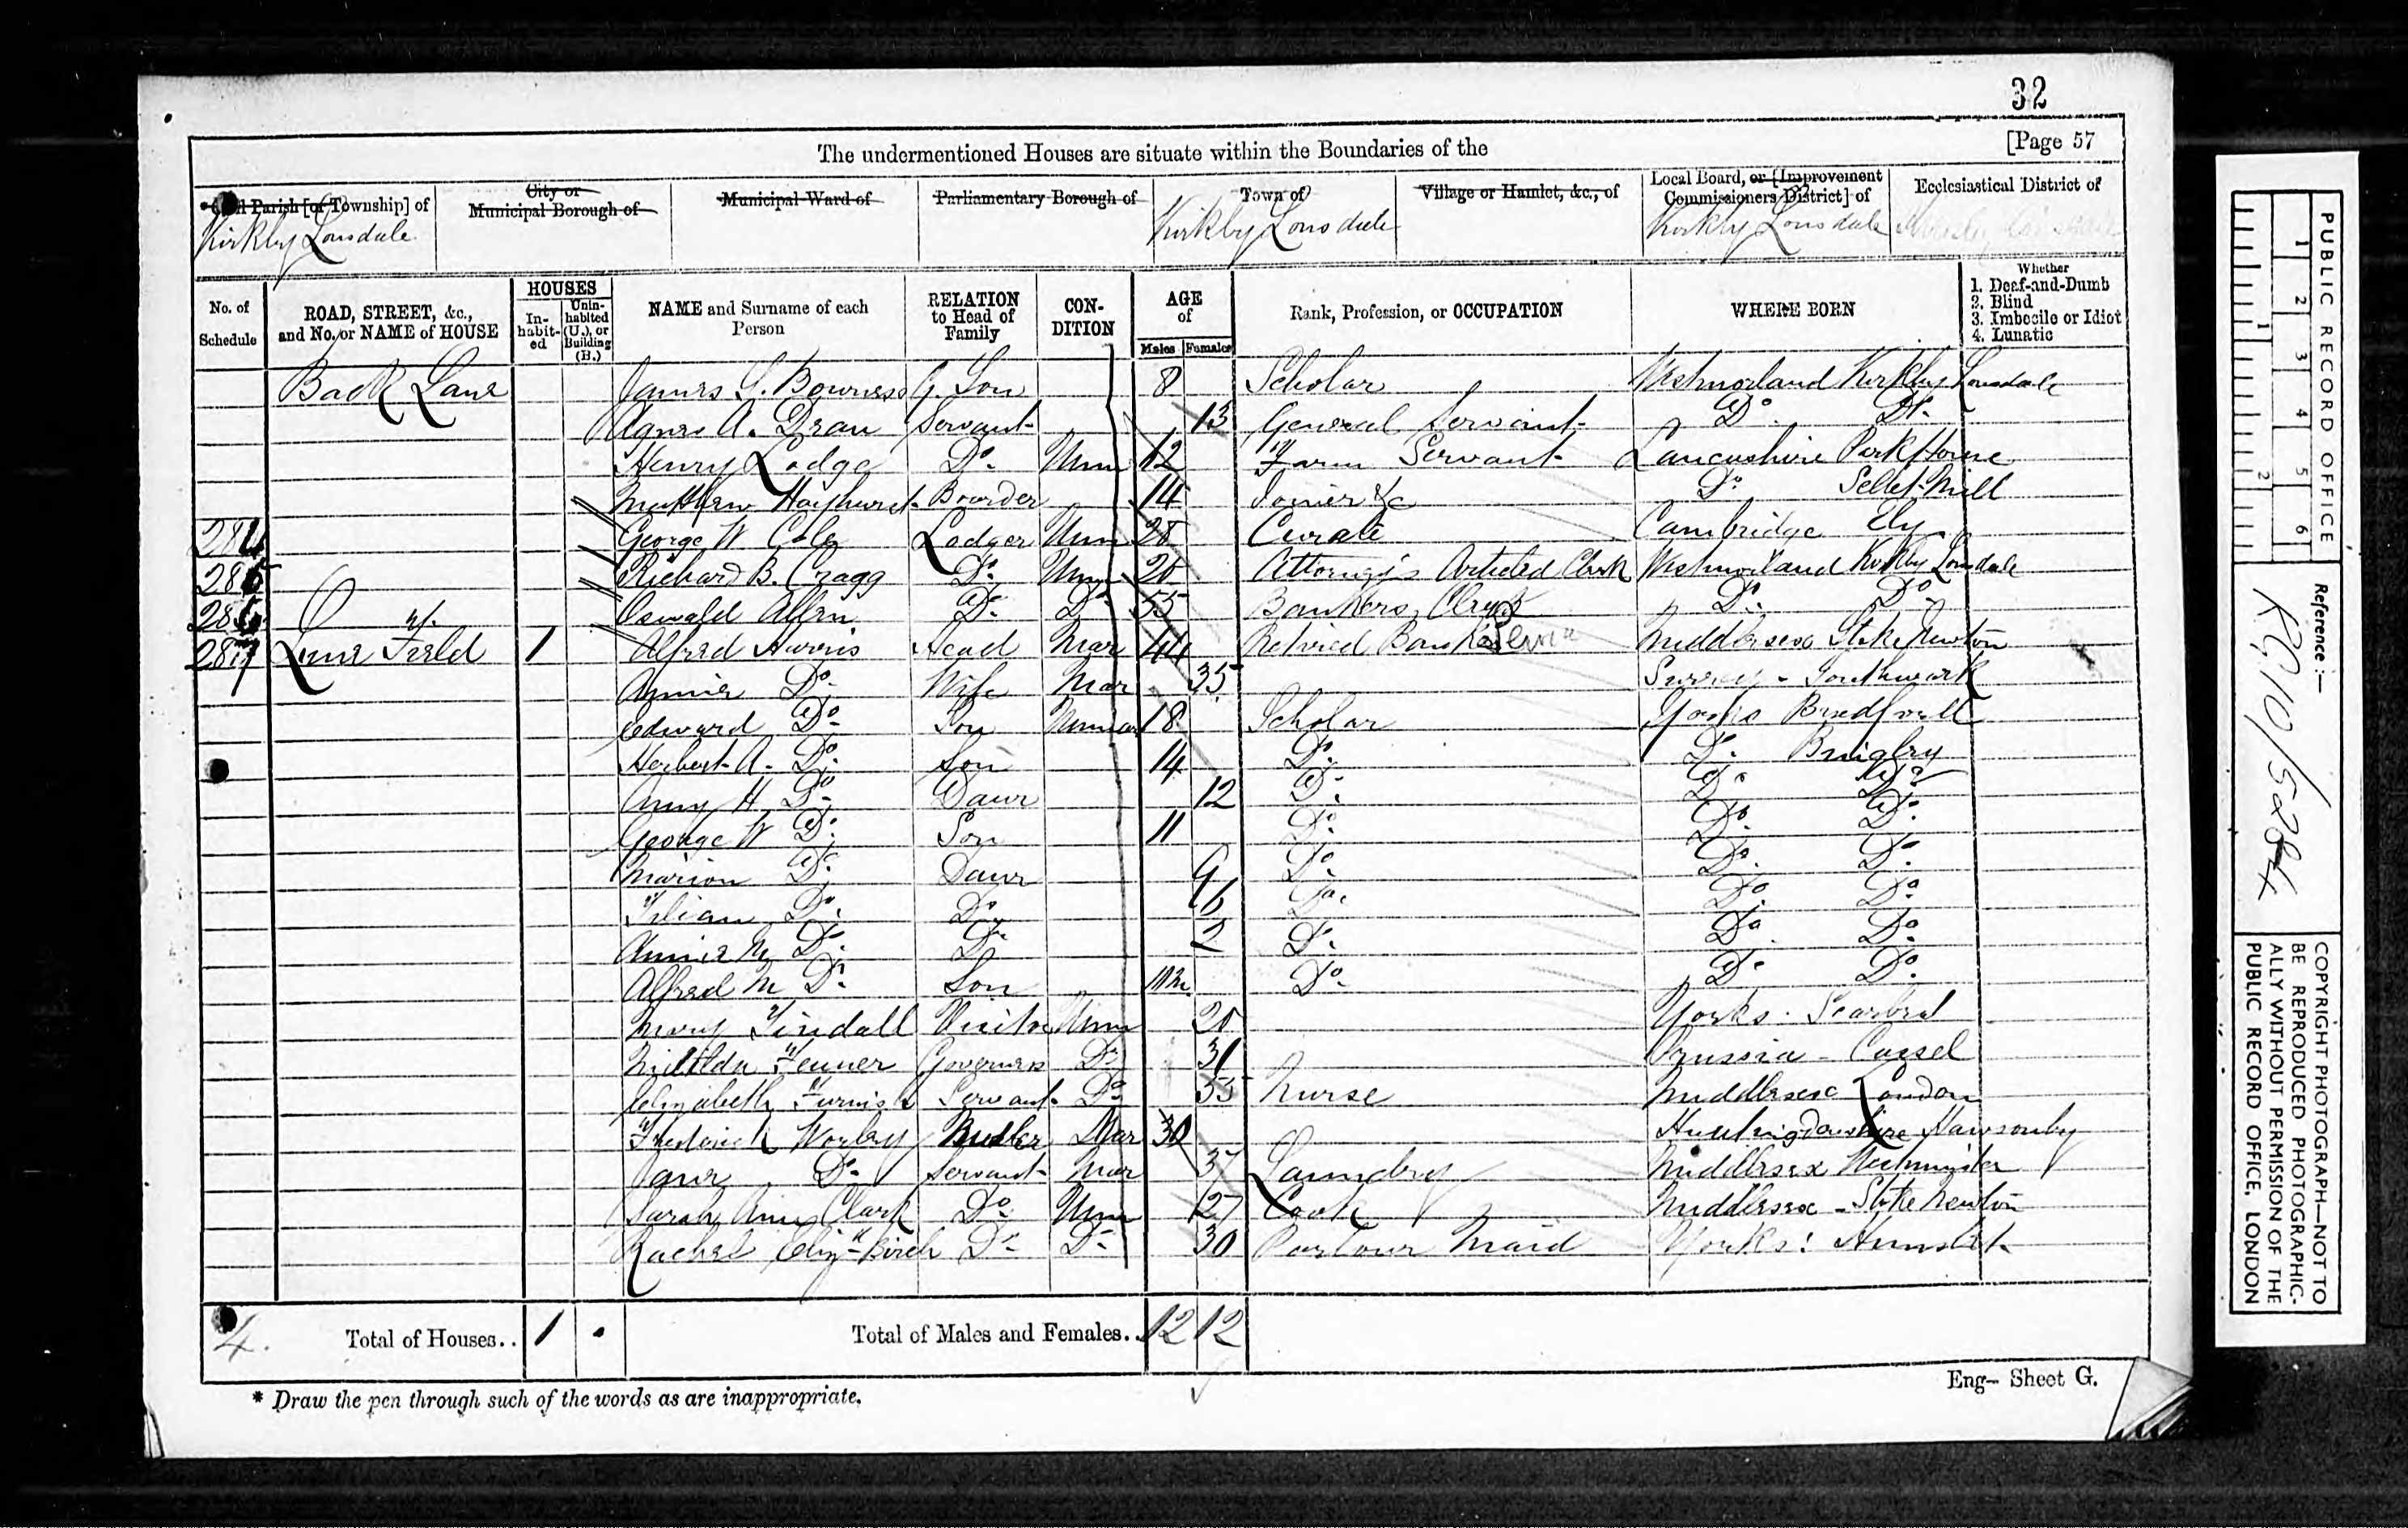 32
The undermentioned Houses are situate within the Boundaries of the
[Page 57
Civil Parish [or Township] of
City or Municipal Borough of
Municipal Ward of
Parliamentary Borough of
Town of
Village or Hamlet, &c., of
Local Board, or [Improvement Commissioners District] of
Ecclesiastical District of
Kirkby Lonsdale
Kirkby Lonsdale
Kirkby Lonsdale
No. of Schedule
ROAD, STREET, &c., and No. or NAME of HOUSE
HOUSES
In-habit-ed
Unin-habited (U.), or Building (B.)
NAME and Surname of each Person
RELATION to Head of Family
CON-DITION
AGE of
Males
Females
Rank, Profession, or OCCUPATION
WHERE BORN
Whether
1. Deaf-and-Dumb
2. Blind
3. Imbecile or Idiot
4. Lunatic
Back Lane James Bowness G. Son 8 Scholar Westmorland Kirkby Lonsdale
Agnes A. Dean Servant 13 General Servant Do. Do.
Henry Lodge Do. Unm 12 Farm Servant Lancashire
Matthew Hayhurst Boarder 14 Joiner &c Do Sellet Mill
284 George W Lodger Unm 28 Curate Cambridge Ely
285 Richard B. Cragg Do. Unm 20 Attorney's Articled Clerk Westmorland Kirkby Lonsdale
286 Oswald Allen Do. Do. 55 Bankers Clerk Do. Do.
287 Lune Field 1 Alfred Harris Head Mar 44 Retired Banker Middlesex Stoke Newton
Annie Do. Wife Mar 35 Surrey - Southwark
Edward Do. Son Unmar 18 Scholar Yorks Bradford
Herbert A. Do. Son 14 Do. Do. Bingley
Amy H. Do. Daur 12 Do. Do. Do.
George W Do. Son 11 Do. Do. Do.
Marion Do. Daur 9 Do. Do. Do.
Lilian Do. Do. 6 Do. Do. Do.
Annie M Do. Do. 2 Do. Do. Do.
Alfred M Do. Son 11m Do. Do. Do.
Mary Tindall Visitor Unm 20 Yorks. Scarbro
Matilda Governess Do 31 Prussia - Cassel
Elizabeth Furnish Servant Do 55 Nurse Middlesex London
Frederick Worley Butler Mar 30 Huntingdonshire
Jane Do. Servant Mar 37 Laundry Middlesex Westminster
Sarah Ann Clark Do. Unm 27 Cook Middlesex - Stoke Newton
Rachel Eliz Birch Do. Do. 30 Parlour Maid Yorks: Hunslet
4.
Total of Houses.. 1
Total of Males and Females.. 12 12
* Draw the pen through such of the words as are inappropriate.
Eng- Sheet G.
PUBLIC RECORD OFFICE
1 2 3 4 5 6
1 2
Reference :-
RG 10/5284
COPYRIGHT PHOTOGRAPH—NOT TO
BE REPRODUCED PHOTOGRAPHIC-
ALLY WITHOUT PERMISSION OF THE
PUBLIC RECORD OFFICE, LONDON